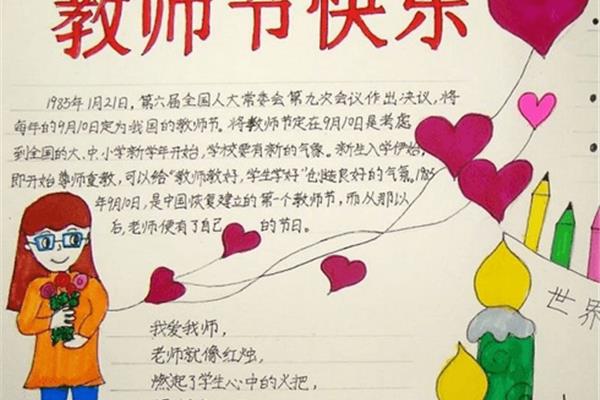 教师节快乐
1985年1月21日,第六届全国人大常委会第九次会议作出决议,将
每年的9月10日定为我国的教师节。将教师节定在9月10日是考虑
到全国的大、中、小学新学年开始,学校要有新的气象。新生入学伊始,
即开始尊师重教,可以给“教师教好,学生学好”创造良好的气氛。1985
年9月10日,是中国恢复建立的第一个教师节,而从那以
后,老师便有了自己的节日。
我爱我师,
老师就像红烛,
燃起了学生心中的火把,
世界